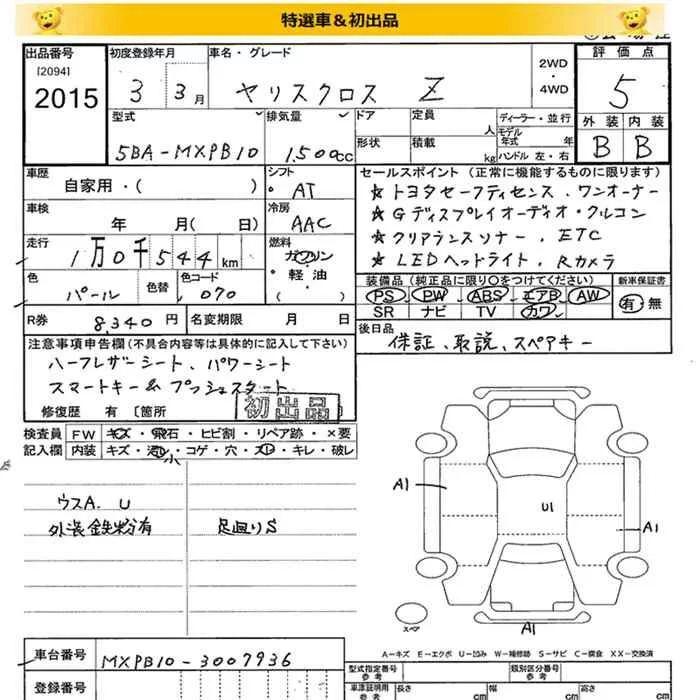 特選車＆初出品
出品番号 初度登録年月 車名・グレード 2WD・4WD 評価点
[2094]
2015 3 3月 ヤリスクロス Z 5
型式 排気量 ドア 定員 人 ディーラー・並行 外装 内装
形状 積載 kg モデル年式 年 ハンドル 左・右
5BA-MXPB10 1.500cc B B
車歴 シフト セールスポイント (正常に機能するものに限ります)
自家用・( ) AT ★トヨタセーフティセンス、ワンオーナー
車検 冷房 ★Gディスプレイオーディオ・クルコン
年 月( 日) AAC ★クリアランスソナー、ETC
走行 燃料 ★LEDヘッドライト、Rカメラ
1万0千544km ガソリン
色 色替 色コード ・軽油 装備品 (純正品に限り○をつけてください) 新車保証書
パール 070 ( ) PS PW ABS エアB AW 有・無
SR ナビ TV カワ
R券 8,340円 名変期限 月 日 後日品
保証、取説、スペアキー
注意事項申告欄 (不具合内容等は具体的に記入して下さい)
ハーフレザーシート、パワーシート
スマートキー& プッシュスタート
修復歴 有 〔箇所 初出品
検査員 FW キズ・飛石・ヒビ割・リペア跡・×要
記入欄 内装 キズ・汚レ小・コゲ・穴・スレ・キレ・破レ
ウスA. U
外装鉄粉有 足廻りS
A1
U1
A1
スペア
A1
A−キズ E−エクボ U−凹み W−補修跡 S−サビ C−腐食 XX−交換済
車台番号 MXPB10-3007936
型式指定番号 参考 類別区分番号 参考
登録番号
車庫証明用 参考 長さ cm 幅 cm 高さ cm